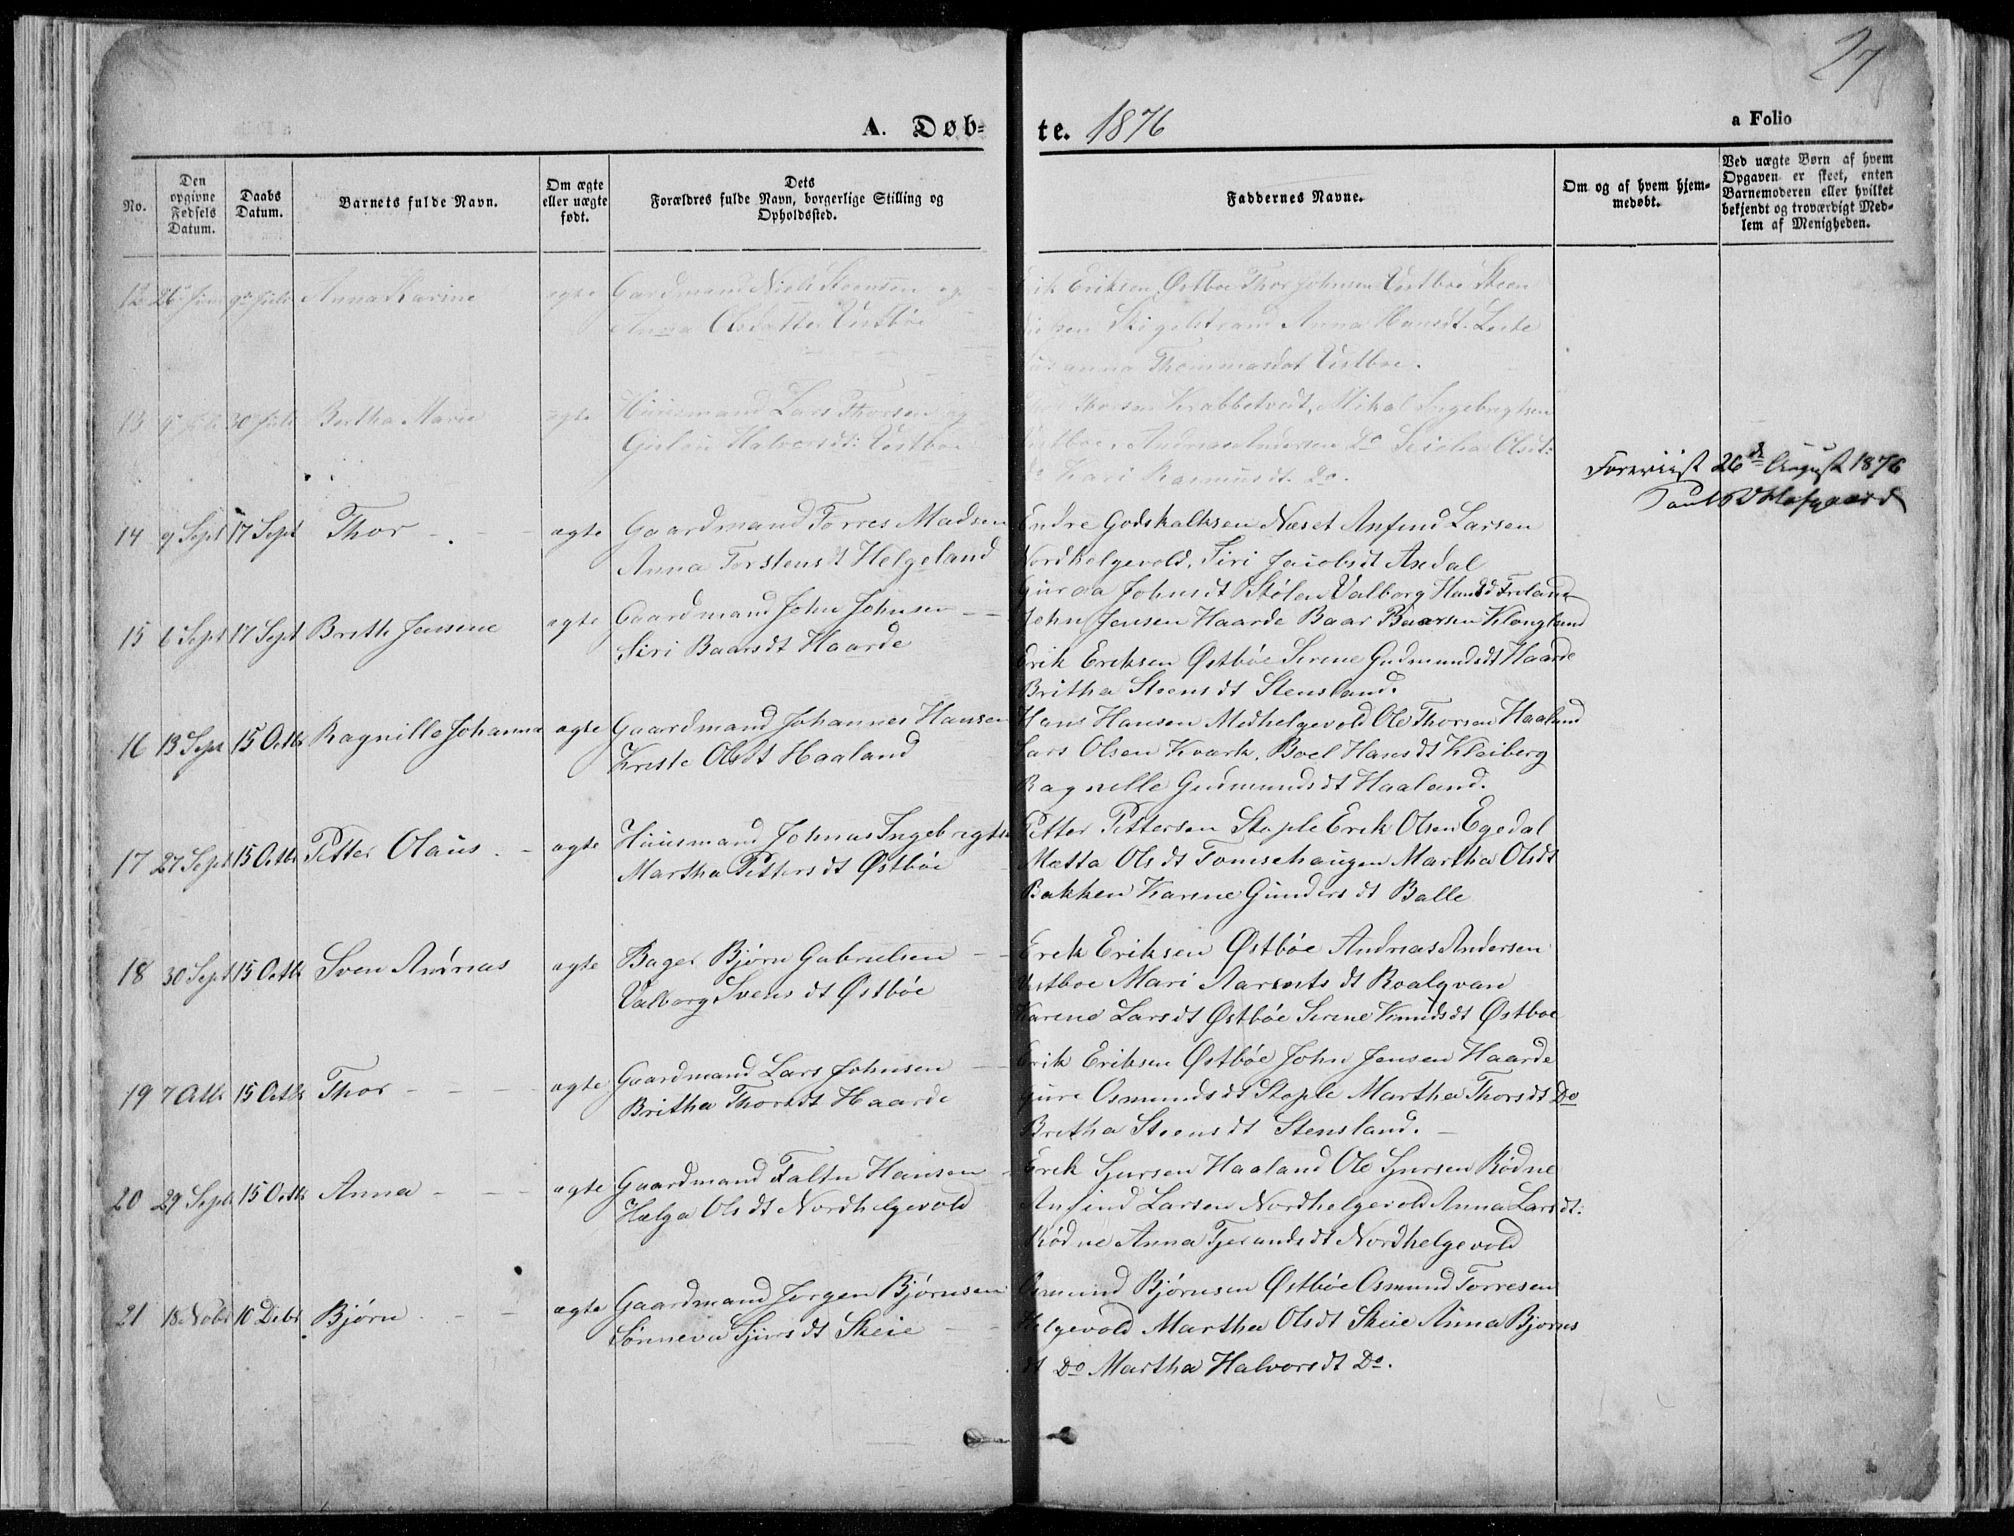 27
A. Døb=
te. 1876
a Folio
No.
Den opgivne Fødsels Datum.
Daabs Datum.
Barnets fulde Navn.
Om ægte eller uægte født.
Dets Forældres fulde Navn, borgerlige Stilling og Opholdssted.
Faddernes Navne.
Om og af hvem hjem-
medøbt.
Ved uægte Børn af hvem
Opgaven er skeet, enten
Barnemoderen eller hvilket
bekjendt og troværdigt Med-
lem af Menigheden.
12 26 Juni 9 Juli Anna Karine ægte Gardmand Niels Steensen og
Anna Olsdatter Vestbøe
Erik Eriksen Østboe Thor Johnsen Vestboe Steen
Skigelstrand Anna Hansdt.
Thommasdat Vestboe.
13 9 Juli 30 Juli Bertha Marie ægte Huusmand Lars Thorsen og
Halvorsdt: Vestboe
Thorsen Krabbetveit, Mikal Ingebrigtsen
Vestboe, Andreas Andersen Do Olsdt:
Do Kari Rasmusdt. Do.
Foreviist 26de August 1876
14 9 Sept 17 Sept Thor - - - ægte Gaardmand Torres Madsen
Anna Torstensdt Helgeland
Endre Godskalksen Næset Anfind Larsen
Nordhelgevold, Siri Jacobsdt Axdal
Guroa Johnsdt Støle Valborg Hansdt
15 6 Sept 17 Sept Brithe Jensine ægte Gaardmand John Johnsen - -
Siri Baarsdt Haarde
John Jensen Haarde Baar Baarsen Klongland
Erik Eriksen Østbøe Serene Gudmundsdt Haarde
Britha Steensdt Stensland.
16 13 Sept 15 Octb Ragnille Johanna ægte Gaardmand Johannes Hansen
Kreste Olsdt Haaland
Hans Hansen Medhelgevold Ole Thorsen Haaland
Lars Olsen Kvark, Boel Hansdt Kleiberg
Ragnelle Gudmundsdt Haaland.
17 27 Sept 15 Octb Petter Olaus. - ægte Huusmand Johnas Ingebrigts
Martha Pettersdt Østbøe
Petter Pettersen Stople Erik Olsen Egedal
Mætta Olsdt Tomsehaugen Martha Olsdt
Bakken Karene Gundersdt Balle
18 30 Sept 15 Octb Sven Andreas ægte Bager Bjørn Gabrielsen - -
Valborg Svensdt Østbøe
Erek Eriksen Østbøe Andreas Andersen
Vestboe Mari Aarentsdt Roalqvam
Karene Larsdt Østbøe Serene Knudsdt Østboe
19 7 Octb 15 Octb Thor - - - ægte Gaardmand Lars Johnsen - -
Britha Thorsdt Haarde
Erik Eriksen Østbøe John Jensen Haarde
Gure Osmundsdt Stople Martha Thorsdt Do
Bretha Steensdt Stensland. -
20 29 Sept 15 Octb Anna - - - ægte Gaardmand Faltin Hansen -
Helga Olsdt Nordhelgevold
Erek Sjursen Haaland Ole Sjursen Rødne
Anfind Larsen Nordhelgevold Anna Larsdt:
Rødne Anna Tjerandsdt Nordhelgevold
21 18 Nobr 10 Debr Bjørn - - - ægte Gaardmand Jørgen Bjørnsen
Sønneva Sjursdt Skeie - -
Osmund Bjørnsen Østbøe Osmund Torresen
Helgevold Martha Olsdt Skeie Anna Bjørns
dt Do Martha Halvorsdt Do.